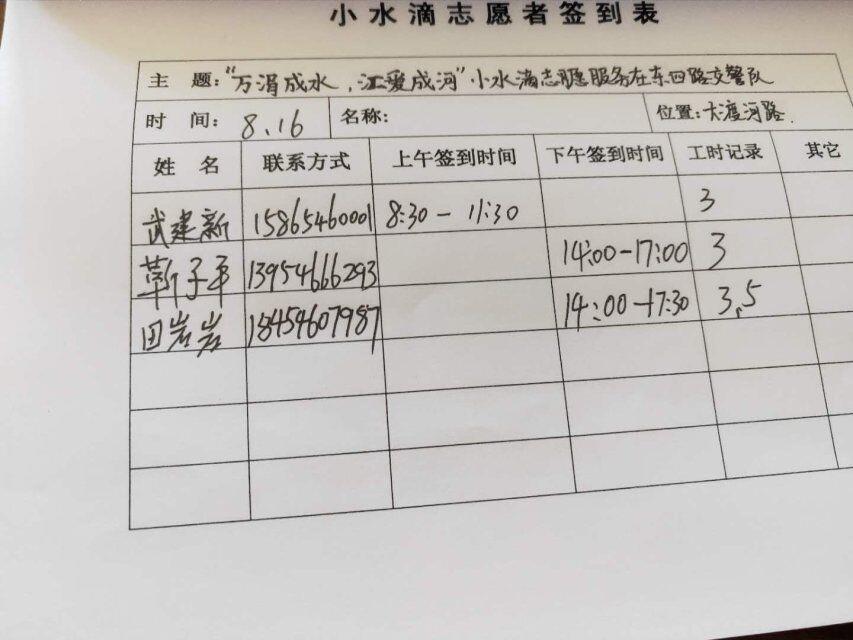 小水滴志愿者签到表
主 题:"万涓成水，江爱成河"小水滴志愿服务在东四路交警队
时 间: 8.16 名称: 位置:大渡河路.
姓 名 联系方式 上午签到时间 下午签到时间 工时记录 其它
武建新 15865460001 8:30-11:30 3
靳子平 13954666293 14:00-17:00 3
田岩岩 18454607987 14:00-17:30 3.5